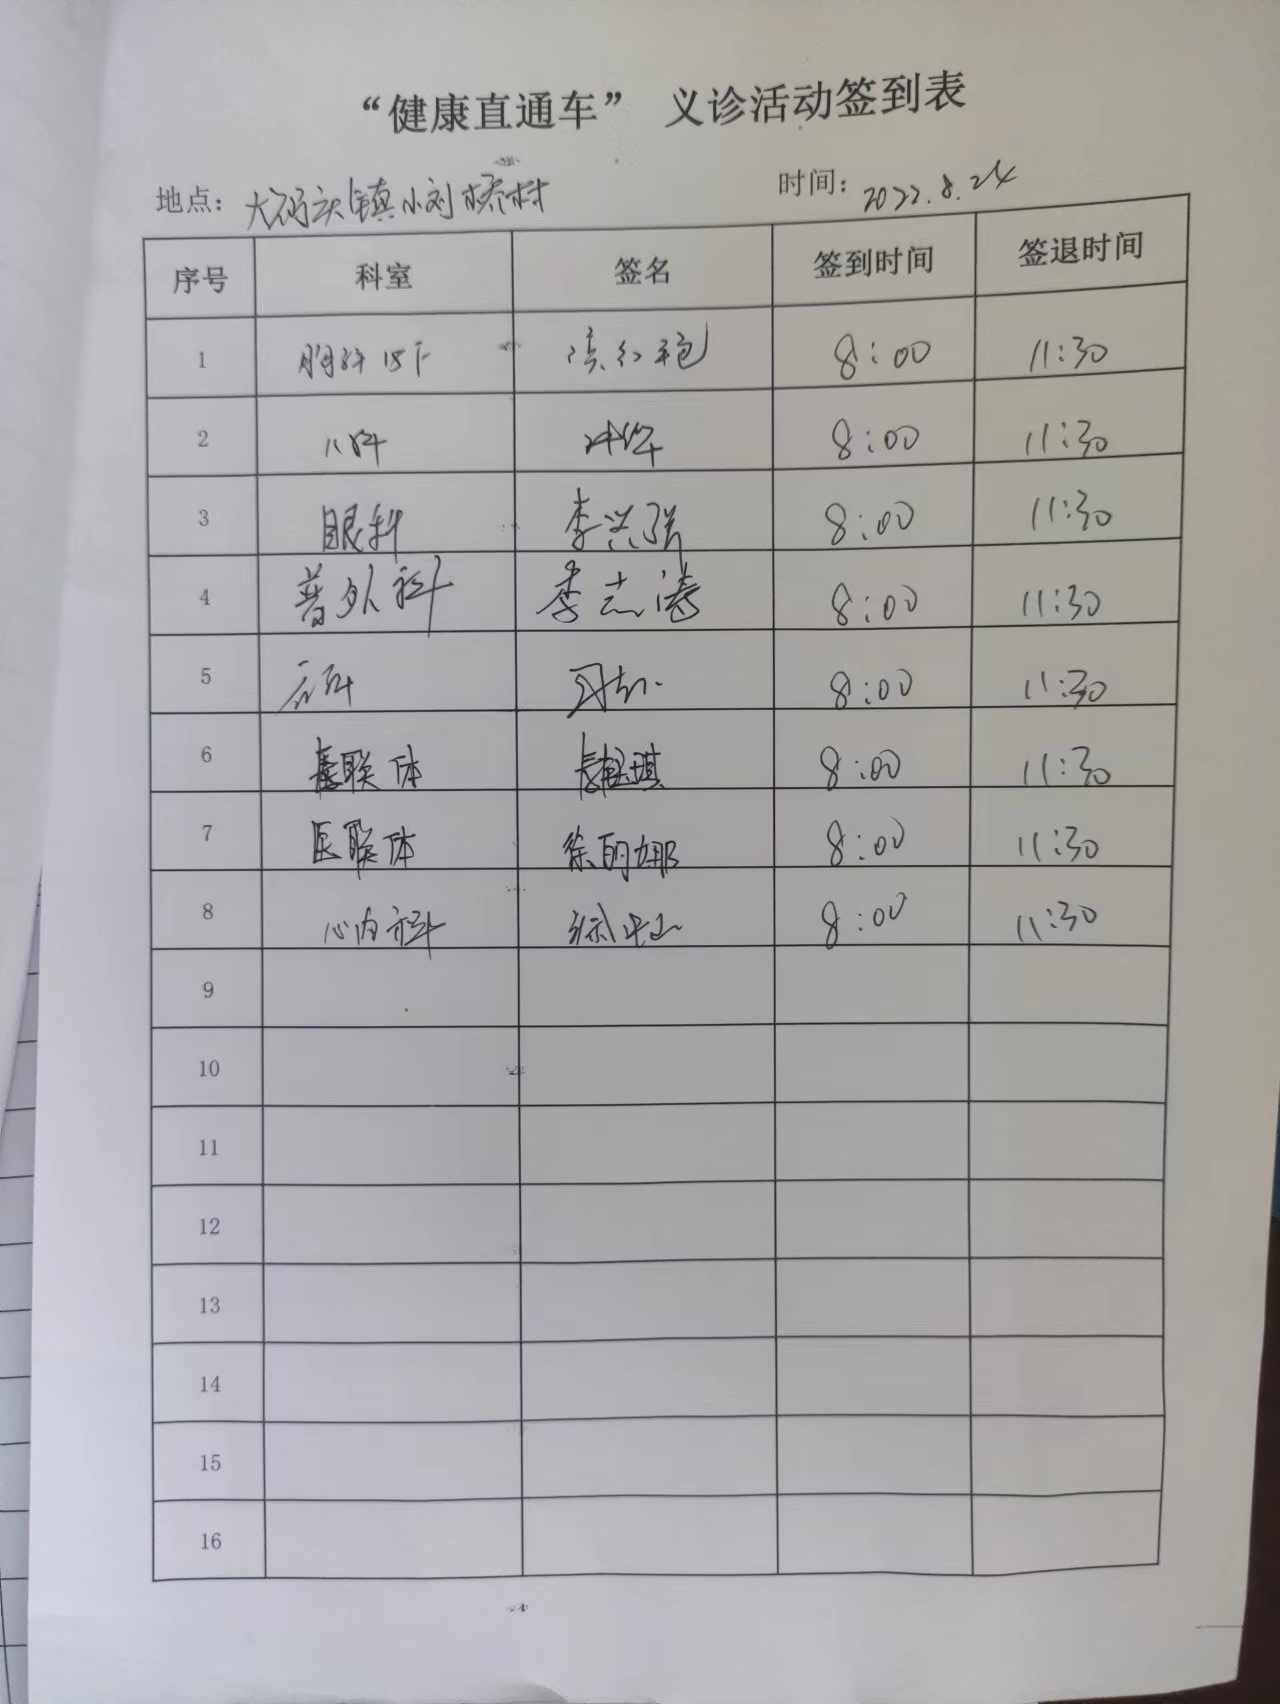 “健康直通车” 义诊活动签到表
地点：大码头镇小刘桥村 时间：2022.8.24
序号 科室 签名 签到时间 签退时间
1 8:00 11:30
2 儿科 8:00 11:30
3 眼科 李兴强 8:00 11:30
4 普外科 李志涛 8:00 11:30
5 8:00 11:30
6 医联体 8:00 11:30
7 医联体 徐丽娜 8:00 11:30
8 心内科 8:00 11:30
9
10
11
12
13
14
15
16